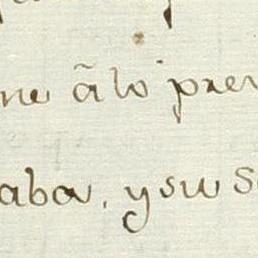 ne ãlo prev
aba, y su s